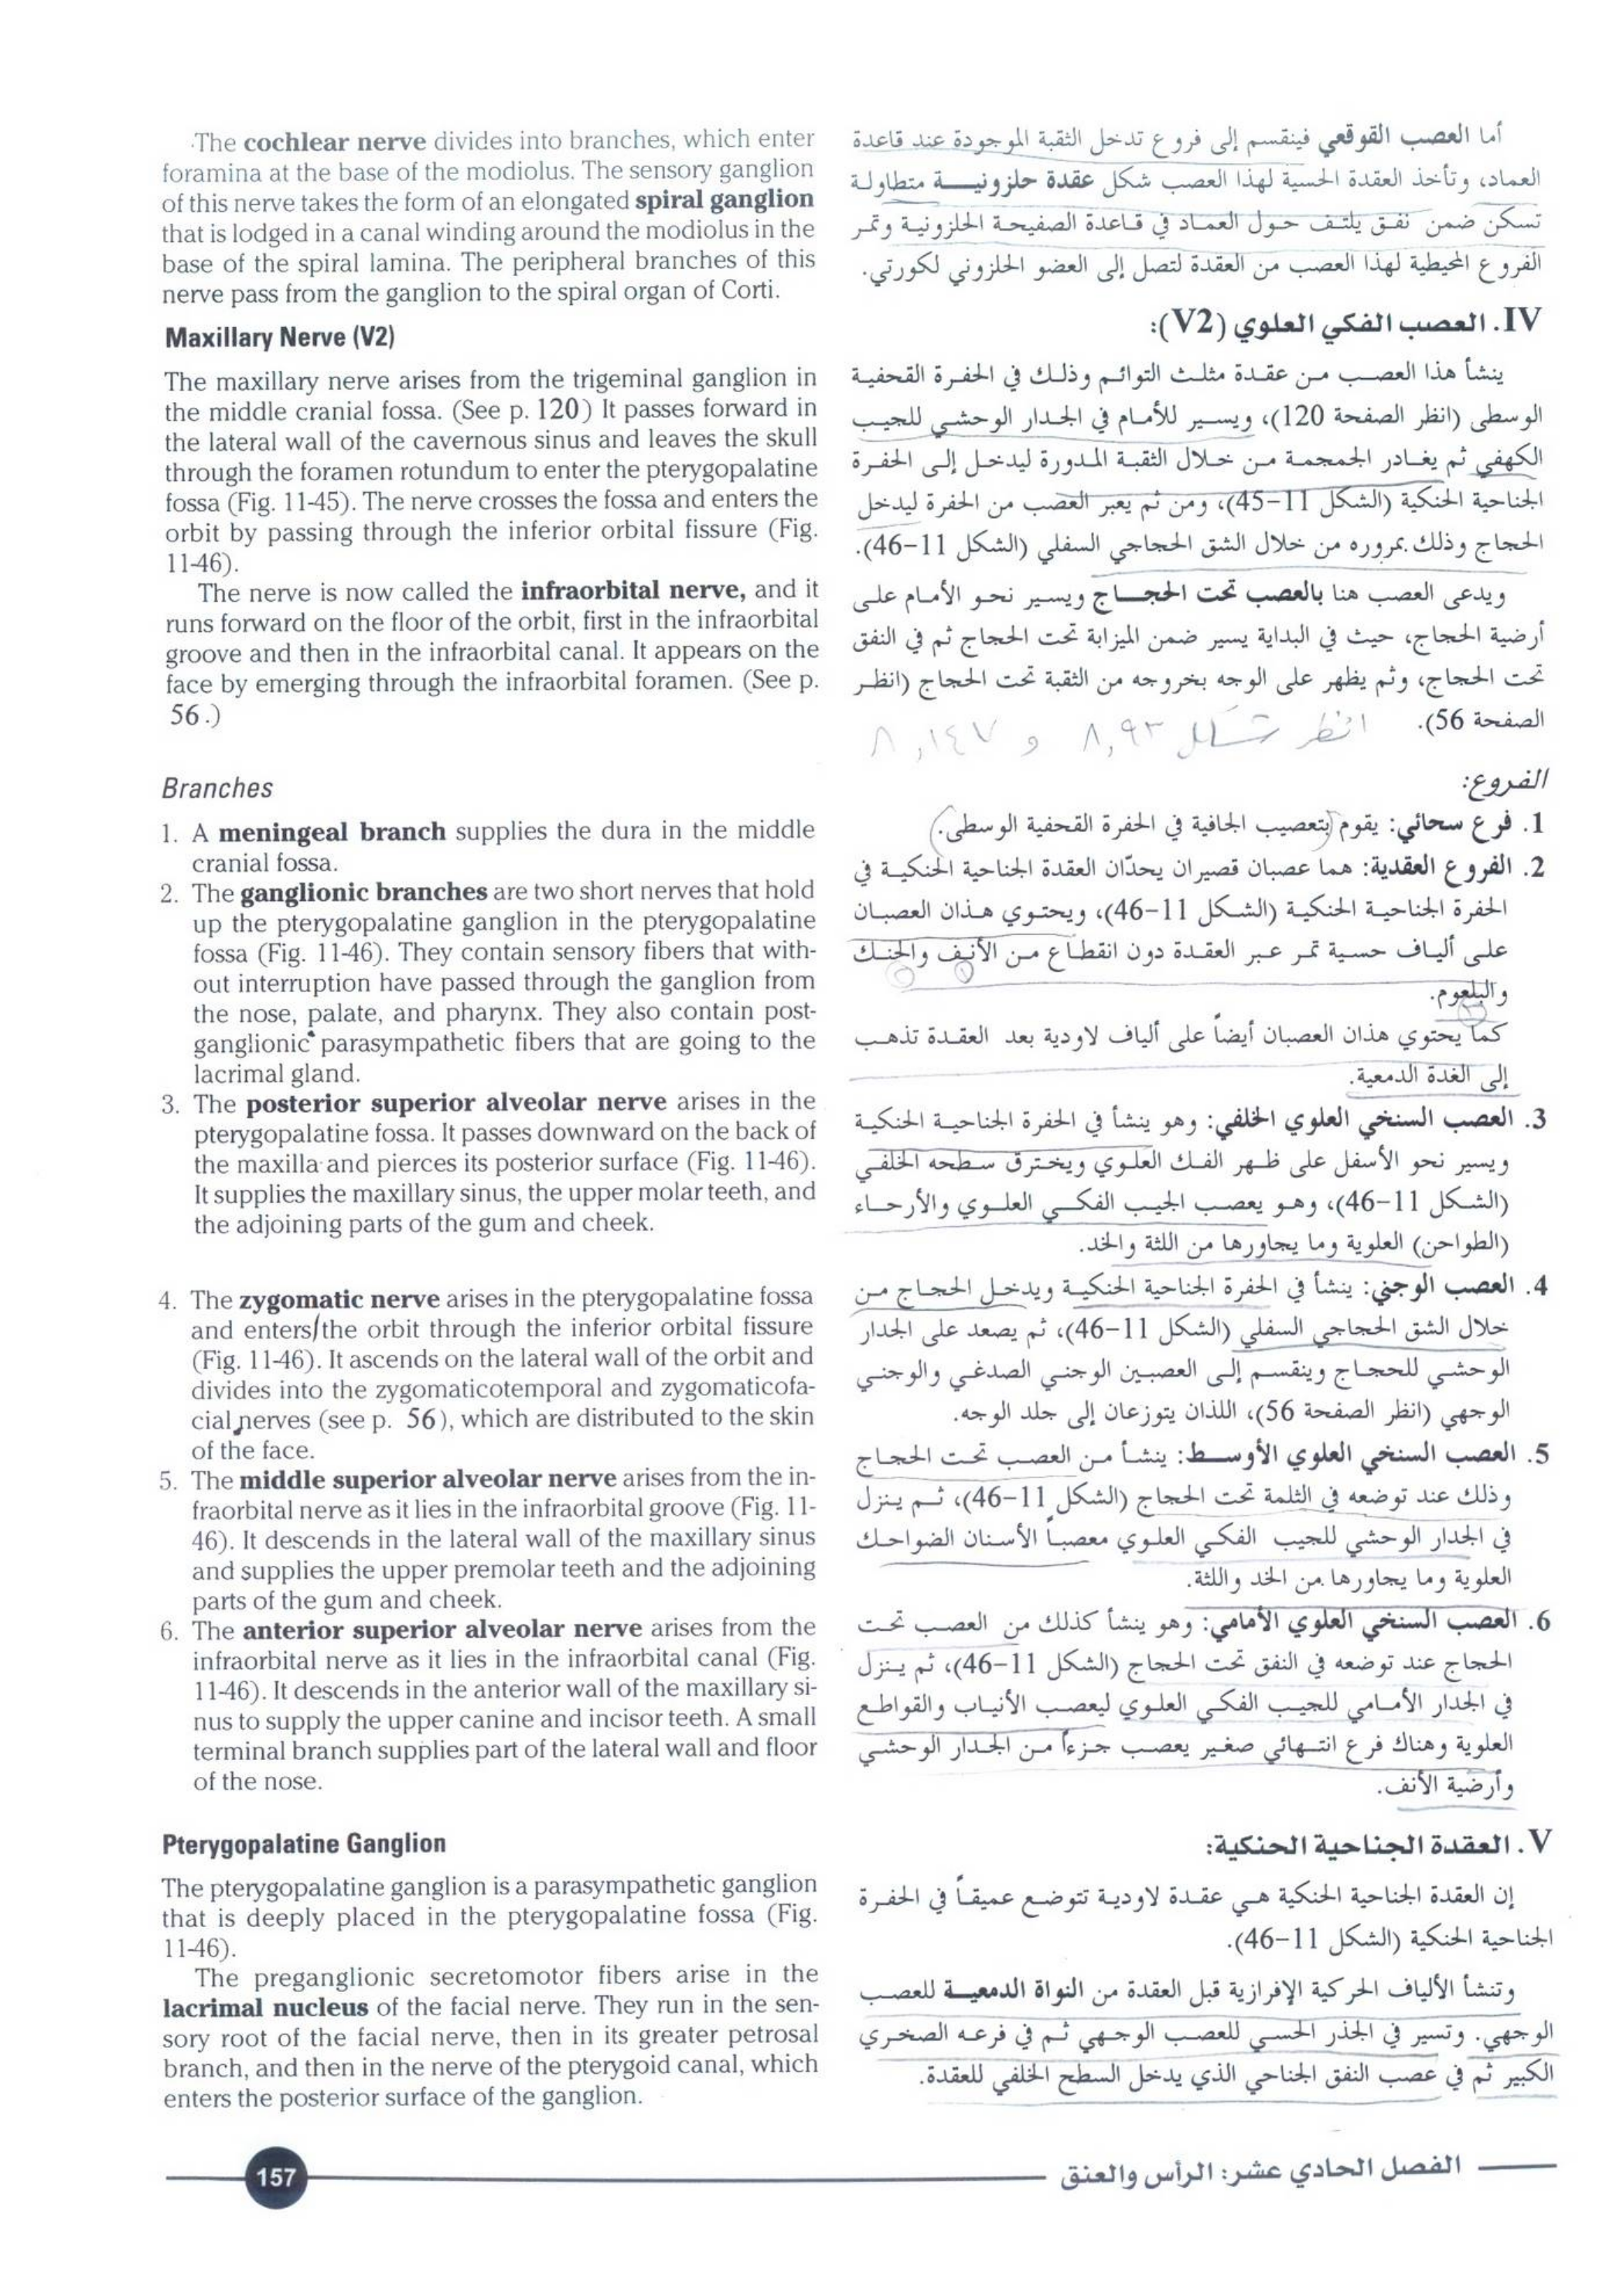 The cochlear nerve divides into branches, which enter
foramina at the base of the modiolus. The sensory ganglion
of this nerve takes the form of an elongated spiral ganglion
that is lodged in a canal winding around the modiolus in the
base of the spiral lamina. The peripheral branches of this
nerve pass from the ganglion to the spiral organ of Corti.
Maxillary Nerve (V2)
The maxillary nerve arises from the trigeminal ganglion in
the middle cranial fossa. (See p. 120) It passes forward in
the lateral wall of the cavernous sinus and leaves the skull
through the foramen rotundum to enter the pterygopalatine
fossa (Fig. 11-45). The nerve crosses the fossa and enters the
orbit by passing through the inferior orbital fissure (Fig.
11-46).
The nerve is now called the infraorbital nerve, and it
runs forward on the floor of the orbit, first in the infraorbital
groove and then in the infraorbital canal. It appears on the
face by emerging through the infraorbital foramen. (See p.
56.)
Branches
1. A meningeal branch supplies the dura in the middle
cranial fossa.
2. The ganglionic branches are two short nerves that hold
up the pterygopalatine ganglion in the pterygopalatine
fossa (Fig. 11-46). They contain sensory fibers that with-
out interruption have passed through the ganglion from
the nose, palate, and pharynx. They also contain post-
ganglionic parasympathetic fibers that are going to the
lacrimal gland.
3. The posterior superior alveolar nerve arises in the
pterygopalatine fossa. It passes downward on the back of
the maxilla and pierces its posterior surface (Fig. 11-46).
It supplies the maxillary sinus, the upper molar teeth, and
the adjoining parts of the gum and cheek.
4. The zygomatic nerve arises in the pterygopalatine fossa
and enters the orbit through the inferior orbital fissure
(Fig. 11-46). It ascends on the lateral wall of the orbit and
divides into the zygomaticotemporal and zygomaticofa-
cial nerves (see p. 56), which are distributed to the skin
of the face.
5. The middle superior alveolar nerve arises from the in-
fraorbital nerve as it lies in the infraorbital groove (Fig. 11-
46). It descends in the lateral wall of the maxillary sinus
and supplies the upper premolar teeth and the adjoining
parts of the gum and cheek.
6. The anterior superior alveolar nerve arises from the
infraorbital nerve as it lies in the infraorbital canal (Fig.
11-46). It descends in the anterior wall of the maxillary si-
nus to supply the upper canine and incisor teeth. A small
terminal branch supplies part of the lateral wall and floor
of the nose.
Pterygopalatine Ganglion
The pterygopalatine ganglion is a parasympathetic ganglion
that is deeply placed in the pterygopalatine fossa (Fig.
11-46).
The preganglionic secretomotor fibers arise in the
lacrimal nucleus of the facial nerve. They run in the sen-
sory root of the facial nerve, then in its greater petrosal
branch, and then in the nerve of the pterygoid canal, which
enters the posterior surface of the ganglion.
أما العصب القوقعي فينقسم إلى فروع تدخل الثقبة الموجودة عند قاعدة
العماد، وتأخذ العقدة الحسية لهذا العصب شكل عقدة حلزونيـــة متطاولة
تسكن ضمن نفق يلتف حول العماد في قاعدة الصفيحة الحلزونية وتمر
الفروع المحيطية لهذا العصب من العقدة لتصل إلى العضو الحلزوني لكورتي.
IV. العصب الفكي العلوي (V2):
ينشأ هذا العصب من عقدة مثلث التوائم وذلك في الحفرة القحفية
الوسطى (انظر الصفحة 120)، ويسير للأمام في الجدار الوحشي للجيب
الكهفي ثم يغادر الجمجمة من خلال الثقبة المدورة ليدخل إلى الحفرة
الجناحية الحنكية (الشكل 11-45)، ومن ثم يعبر العصب من الحفرة ليدخل
الحجاج وذلك بمروره من خلال الشق الحجاجي السفلي (الشكل 11-46).
ويدعى العصب هنا بالعصب تحت الحجـــاج ويسير نحو الأمام على
أرضية الحجاج، حيث في البداية يسير ضمن الميزابة تحت الحجاج ثم في النفق
تحت الحجاج، وثم يظهر على الوجه بخروجه من الثقبة تحت الحجاج (انظر
الصفحة 56).
انظر شكل ٨,٩٣ و ٨,١٤٧
الفروع:
1. فرع سحائي: يقوم بتعصيب الجافية في الحفرة القحفية الوسطى.
2. الفروع العقدية: هما عصبان قصيران يحدّان العقدة الجناحية الحنكية في
الحفرة الجناحية الحنكية (الشكل 11-46)، ويحتوي هذان العصبان
على ألياف حسية تمر عبر العقدة دون انقطاع من الأنف والحنك
والبلعوم.
كما يحتوي هذان العصبان أيضاً على ألياف لاودية بعد العقدة تذهب
إلى الغدة الدمعية.
3. العصب السنخي العلوي الخلفي: وهو ينشأ في الحفرة الجناحية الحنكية
ويسير نحو الأسفل على ظهر الفك العلوي ويخترق سطحه الخلفي
(الشكل 11-46)، وهو يعصب الجيب الفكي العلوي والأرحاء
(الطواحن) العلوية وما يجاورها من اللثة والخد.
4. العصب الوجني: ينشأ في الحفرة الجناحية الحنكية ويدخل الحجاج من
خلال الشق الحجاجي السفلي (الشكل 11-46)، ثم يصعد على الجدار
الوحشي للحجاج وينقسم إلى العصبين الوجني الصدغي والوجني
الوجهي (انظر الصفحة 56)، اللذان يتوزعان إلى جلد الوجه.
5. العصب السنخي العلوي الأوسط: ينشأ من العصب تحت الحجاج
وذلك عند توضعه في الثلمة تحت الحجاج (الشكل 11-46)، ثم ينزل
في الجدار الوحشي للجيب الفكي العلوي معصباً الأسنان الضواحك
العلوية وما يجاورها من الخد واللثة.
6. العصب السنخي العلوي الأمامي: وهو ينشأ كذلك من العصب تحت
الحجاج عند توضعه في النفق تحت الحجاج (الشكل 11-46)، ثم ينزل
في الجدار الأمامي للجيب الفكي العلوي ليعصب الأنياب والقواطع
العلوية وهناك فرع انتهائي صغير يعصب جزءاً من الجدار الوحشي
وأرضية الأنف.
V. العقدة الجناحية الحنكية:
إن العقدة الجناحية الحنكية هي عقدة لاودية تتوضع عميقاً في الحفرة
الجناحية الحنكية (الشكل 11-46).
وتنشأ الألياف الحركية الإفرازية قبل العقدة من النواة الدمعيـــة للعصب
الوجهي. وتسير في الجذر الحسي للعصب الوجهي ثم في فرعه الصخري
الكبير ثم في عصب النفق الجناحي الذي يدخل السطح الخلفي للعقدة.
157
الفصل الحادي عشر: الرأس والعنق